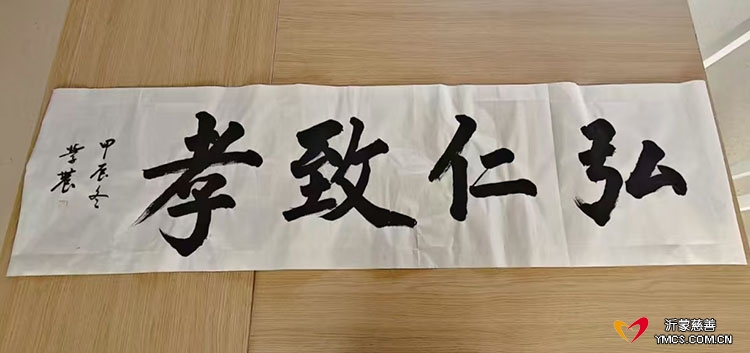 弘仁致孝
甲辰冬
学农
沂蒙慈善
YMCS.COM.CN